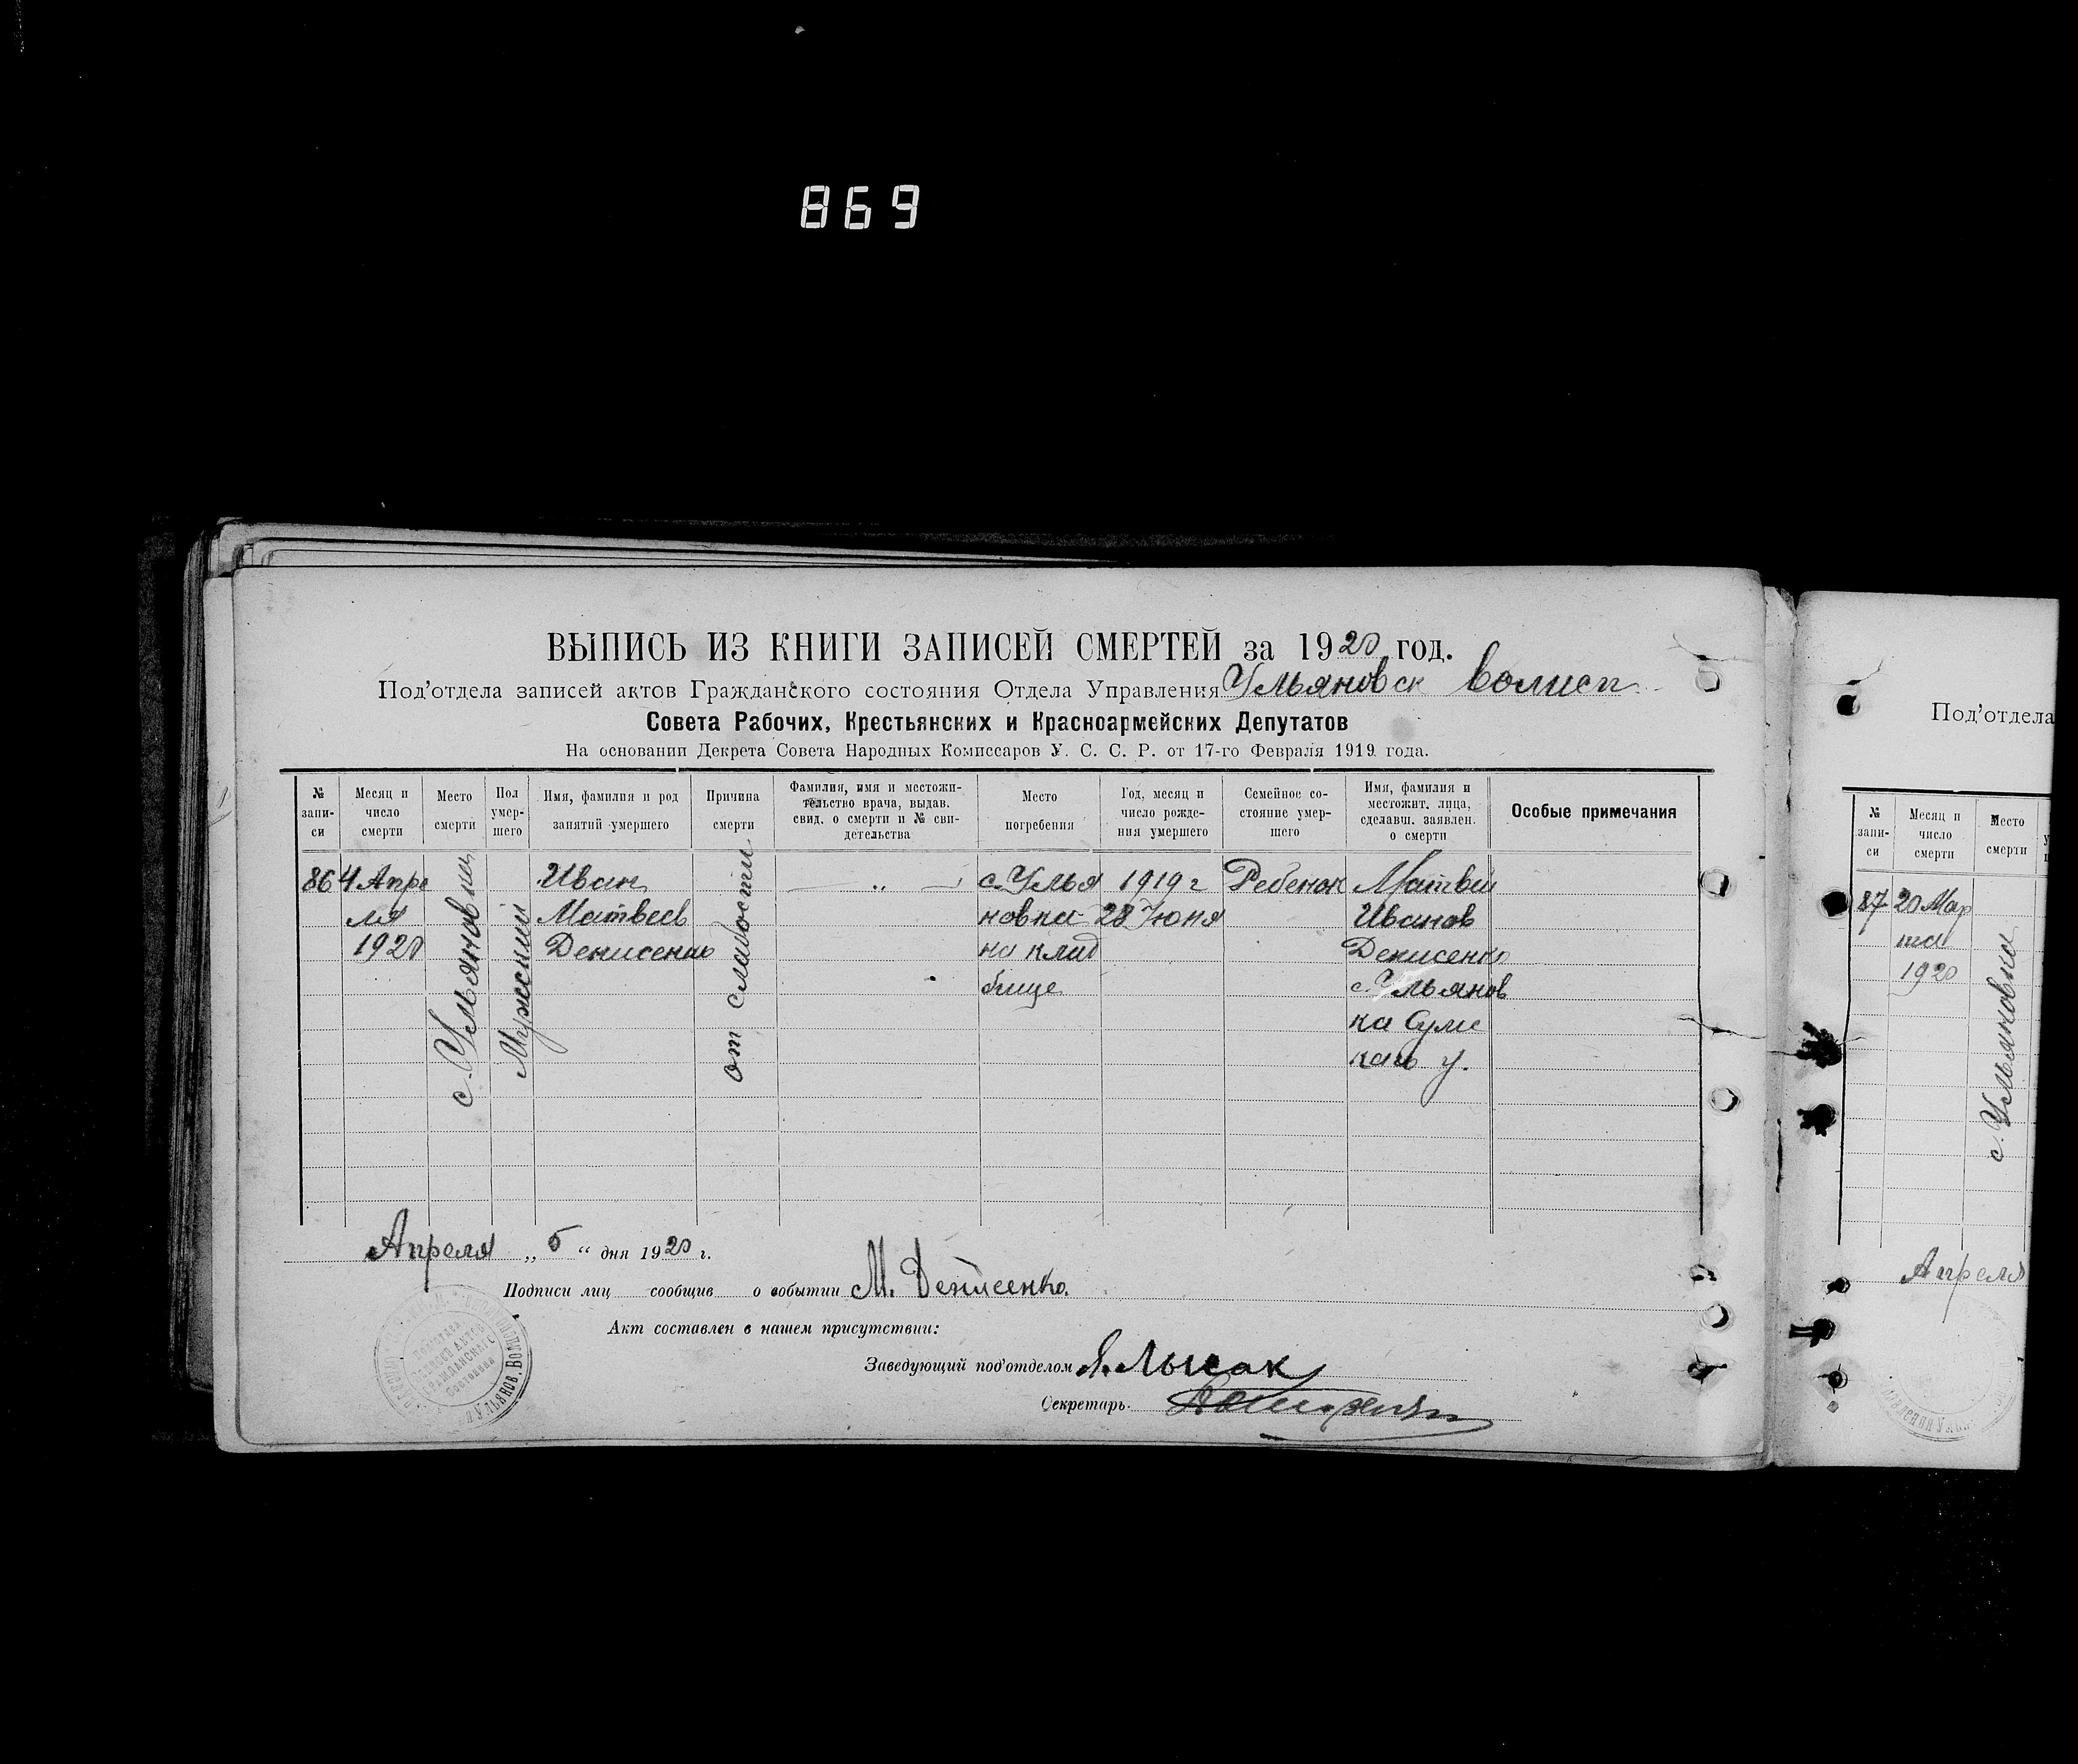 869
ВЫПИСЬ ИЗ КНИГИ ЗАПИСЕЙ СМЕРТЕЙ за 1920 год.
Под'отдела записей актов Гражданского состояния Отдела Управления Ульяновск волисп.
Совета Рабочих, Крестьянских и Красноармейских Депутатов
На основании Декрета Совета Народных Комиссаров У. С. С. Р. от 17-го Февраля 1919 года.
№ запи-си
Месяц и число смерти
Место смерти
Пол умер-шего
Имя, фамилия и род занятий умершего
Причина смерти
Фамилия, имя и местожи-тельство врача, выдав. свид. о смерти и № сви-детельства
Место погребения
Год, месяц и число рожде-ния умершего
Семейное со-стояние умер-шего
Имя, фамилия и местожит. лица, сделавш. заявлен. о смерти
Особые примечания
86
4 Апре
ля
1920
с. Ульяновка
Мужеский
Иван
Матвеев
Денисенко
от слабости
— „ —
с. Улья
новка
на клад
бище
1919 г
28 Июня
Ребенок
Матвей
Иванов
Денисенко
с. Ульянов
ка Сумс
каго у.
Апреля „ 5 “ дня 1920 г.
Подписи лиц сообщив о событии М. Денисенко.
Акт составлен в нашем присутствии:
Заведующий под'отделом Я. Лысак
Секретарь
Под'отдела
№ запи-си
Месяц и число смерти
Место смерти
87
20 Мар
та
1920
с. Ульяновка
Апреля